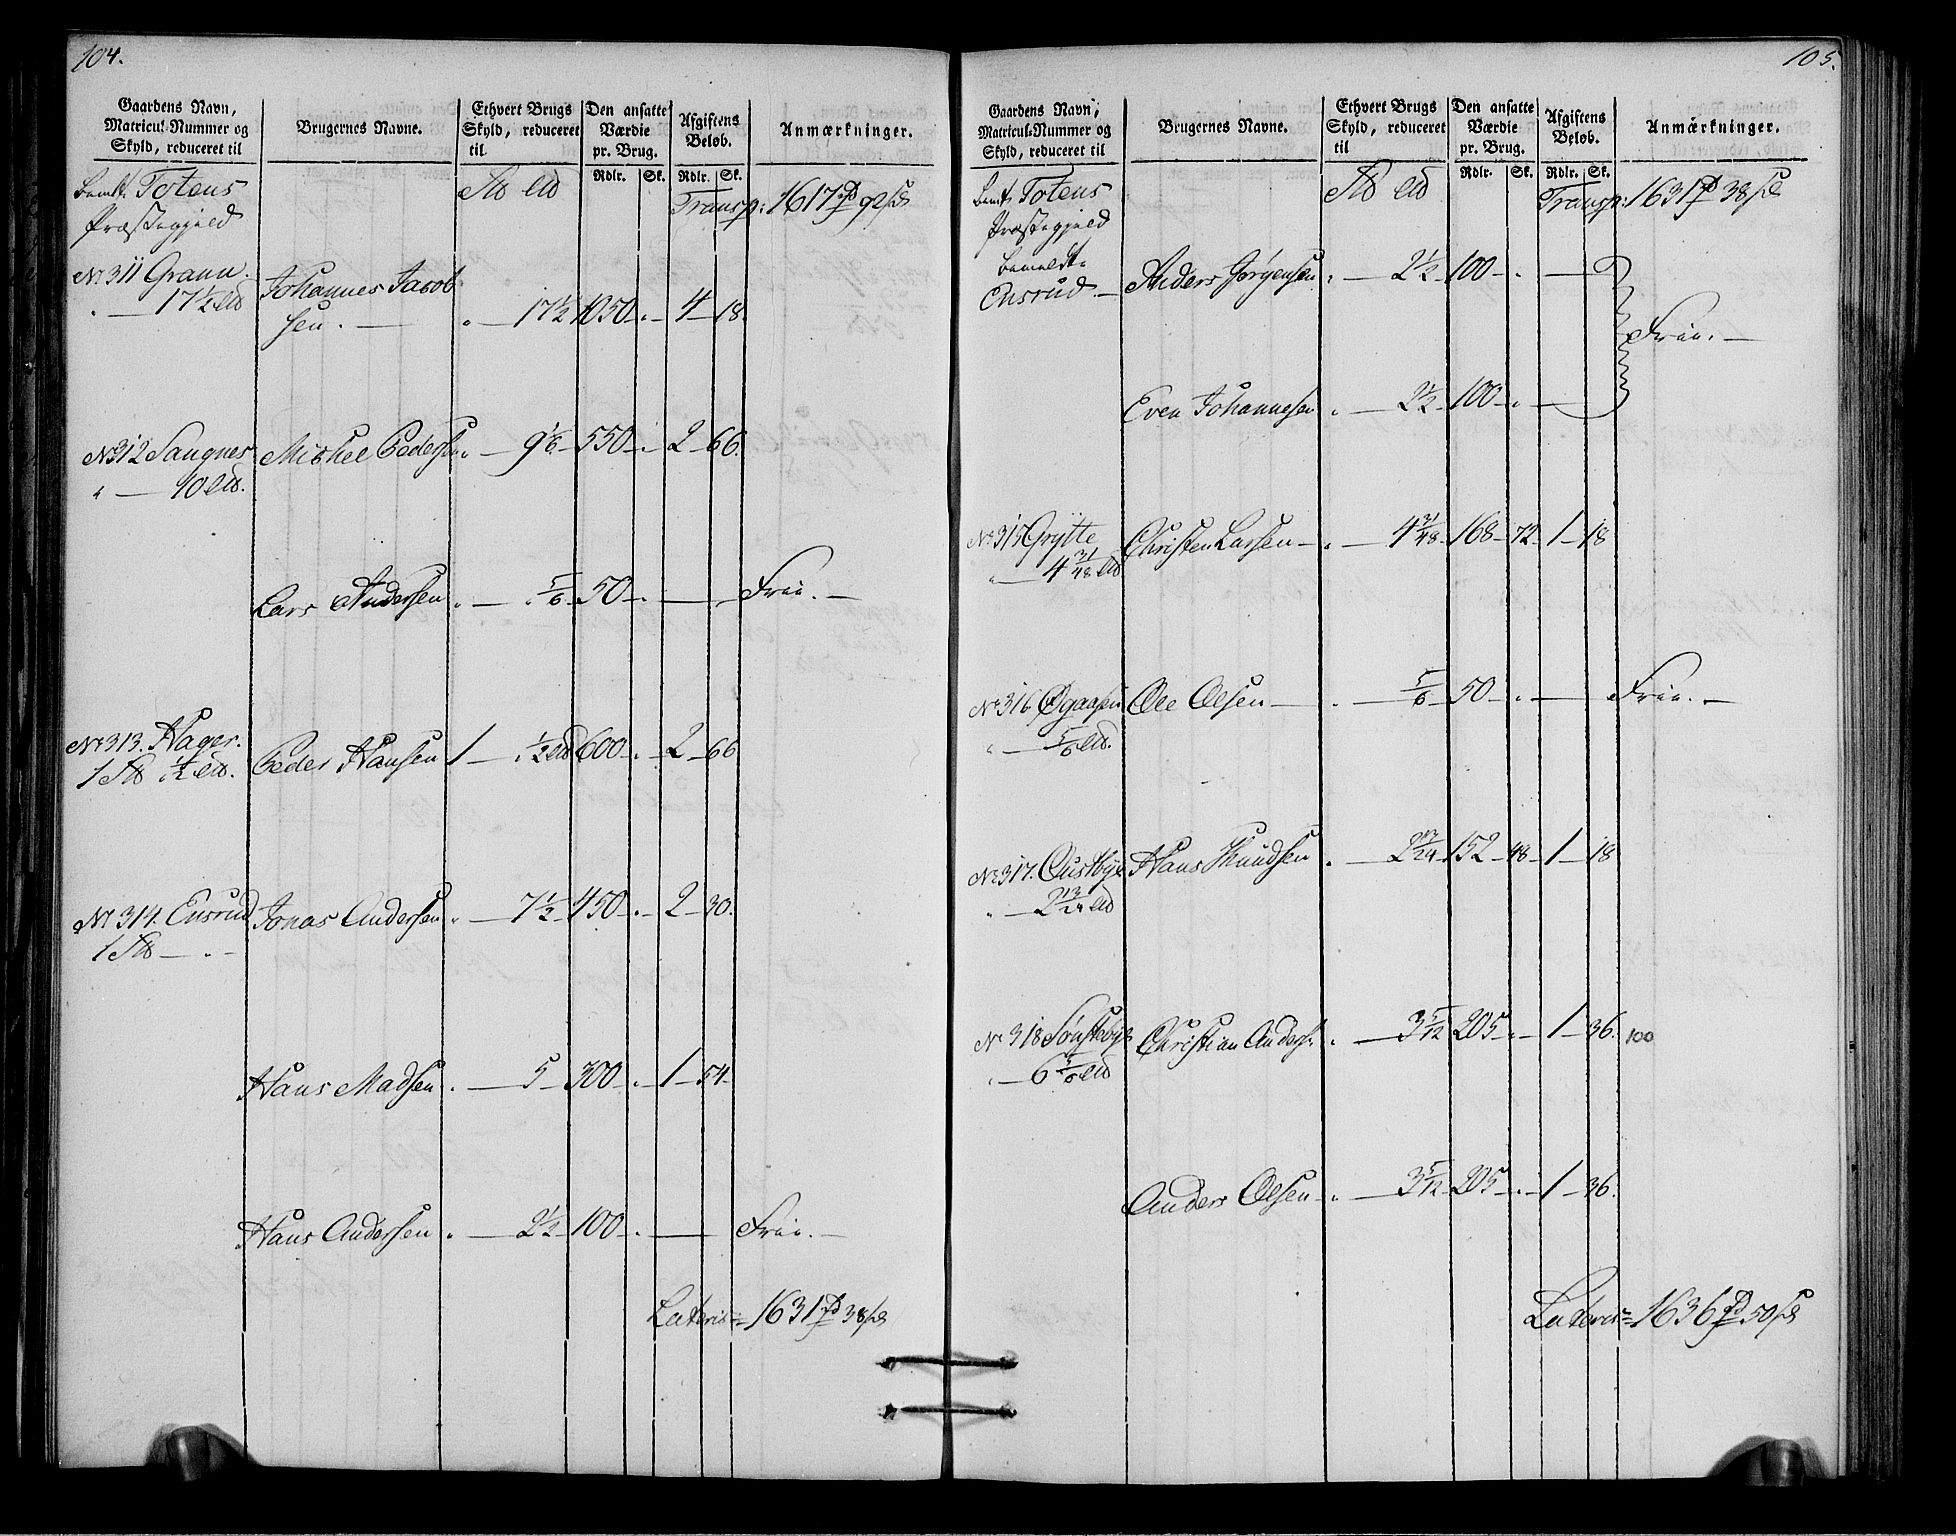 104.
Gaardens Navn, Matricul-Nummer og Skyld, reduceret til
Brugernes Navne.
Ethvert Brugs Skyld, reduceret til
Den ansatte Værdie pr. Brug.
Rdlr. Sk.
Afgiftens Beløb.
Rdlr. Sk.
Anmærkninger.
bemte Totens
Præstegjeld
Transp: 1617 92
No 311 Grann.
17½ Johannes Jacob
sen. — " — 17½ 1050 — " — 4 — 18.
No 312 Sangnes Mickel Pedersen " — 9⅙ — 550 — " — 2 — 66.
" — 10
Lars Andersen " — " 5/6 — 50 — " — — Frie. —
No 313. Hager. Peder Hansen 1 — " ½ 600 — " — 2 — 66
1 ½
No 314. Ensrud Jonas Andersen " — 7½ — 450 — " — 2 — 30.
1 — " —
Hans Madsen " — 5 — 300 — " — 1 — 54.
Hans Andersen " — 2½ — 100 — " — — Frie. —
Lateris = 1631 38
105.
Gaardens Navn, Matricul-Nummer og Skyld, reduceret til
Brugernes Navne.
Ethvert Brugs Skyld, reduceret til
Den ansatte Værdie pr. Brug.
Rdlr. Sk.
Afgiftens Beløb.
Rdlr. Sk.
Anmærkninger.
bemte Totens
Præstegjeld
Transp: 1631 38
bemeldte
Ensrud — Anders Jørgensen " — 2½ 100 — " —
Frie. —
Even Johannesen " — 2½ 100 — " —
No 315 Grytte Christen Larsen — " — 4 31/48 168 — 72 — 1 — 18
" — 4 31/48
No 316. Øgaasen Ole Olsen — " — 5/6 — 50 — " — Frie. —
" — 5/6
No 317. Oustbye Hans Knudsen " — 2 13/24 152 — 48 — 1 — 18
" — 2 13/24
No 318 Sønstebye Christian Anders: " — 3 5/12 205 — " — 1 — 36. 100
" — 6 5/6
Anders Olsen — " — 3 5/12 205 — " — 1 — 36.
Lateris = 1636 50